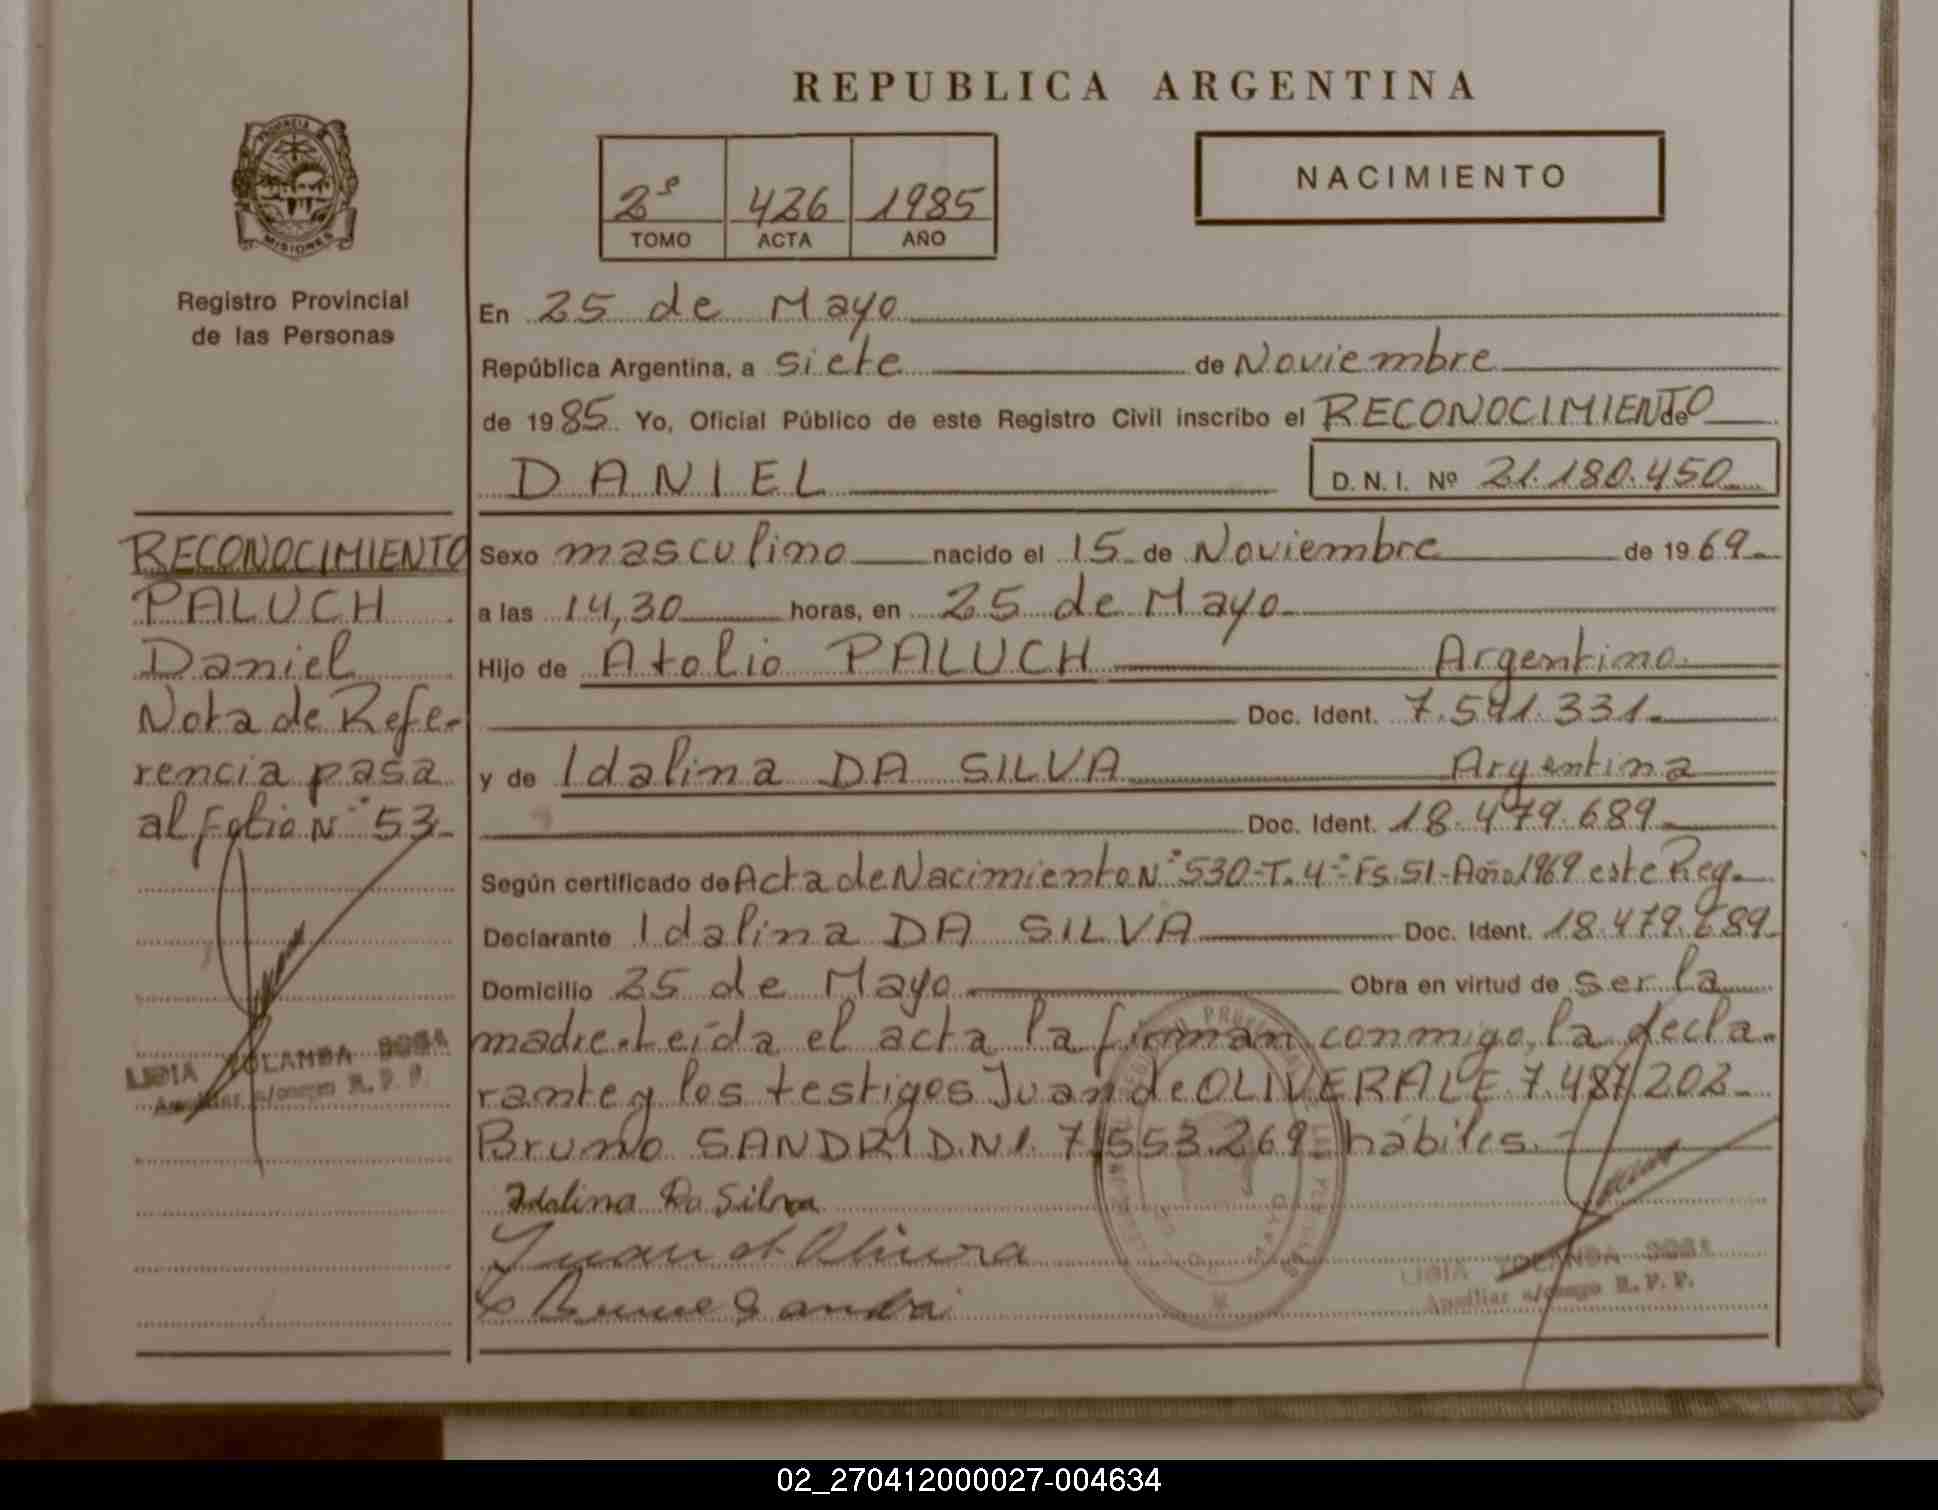 REPUBLICA ARGENTINA
NACIMIENTO
2º 426 1985
TOMO ACTA AÑO
PROVINCIA
MISIONES
Registro Provincial
de las Personas
En 25 de Mayo
República Argentina, a siete de Noviembre
de 1985 Yo, Oficial Público de este Registro Civil inscribo el RECONOCIMIENTO de
DANIEL D.N.I. Nº 21.180.450
Sexo masculino nacido el 15 de Noviembre de 1969
a las 14,30 horas, en 25 de Mayo
Hijo de Atolio PALUCH Argentino
Doc. Ident. 7.541.331
y de Idalina DA SILVA Argentina
Doc. Ident. 18.479.689
Según certificado de Acta de Nacimiento Nº 530-T. 4º-Fs. 51-Año 1969 este Reg.
Declarante Idalina DA SILVA Doc. Ident. 18.479.689
Domicilio 25 de Mayo Obra en virtud de ser la
madre. Leída el acta la firman conmigo, la decla-
rante y los testigos Juan de OLIVERA L.E. 7.487.202
Bruno SANDRI D.N.I. 7.553.269 hábiles.-
Idalina Da Silva
Juan d Olivera
Bruno Sandri
LIGIA YOLANDA
Auxiliar a/cargo R. P. P.
RECONOCIMIENTO
PALUCH
Daniel
Nota de Refe-
rencia pasa
al Folio Nº 53
LIGIA YOLANDA
Auxiliar a/cargo R. P. P.
02_270412000027-004634